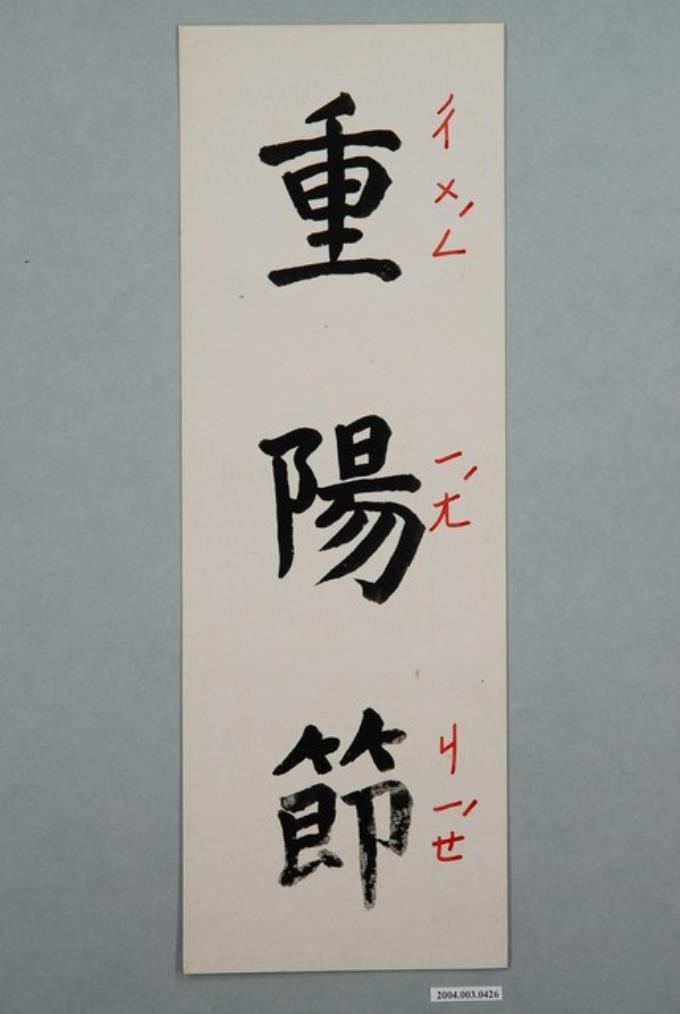 重陽節
ㄔㄨㄥˊ
ㄧㄤˊ
ㄐㄧㄝˊ
2004.003.0426